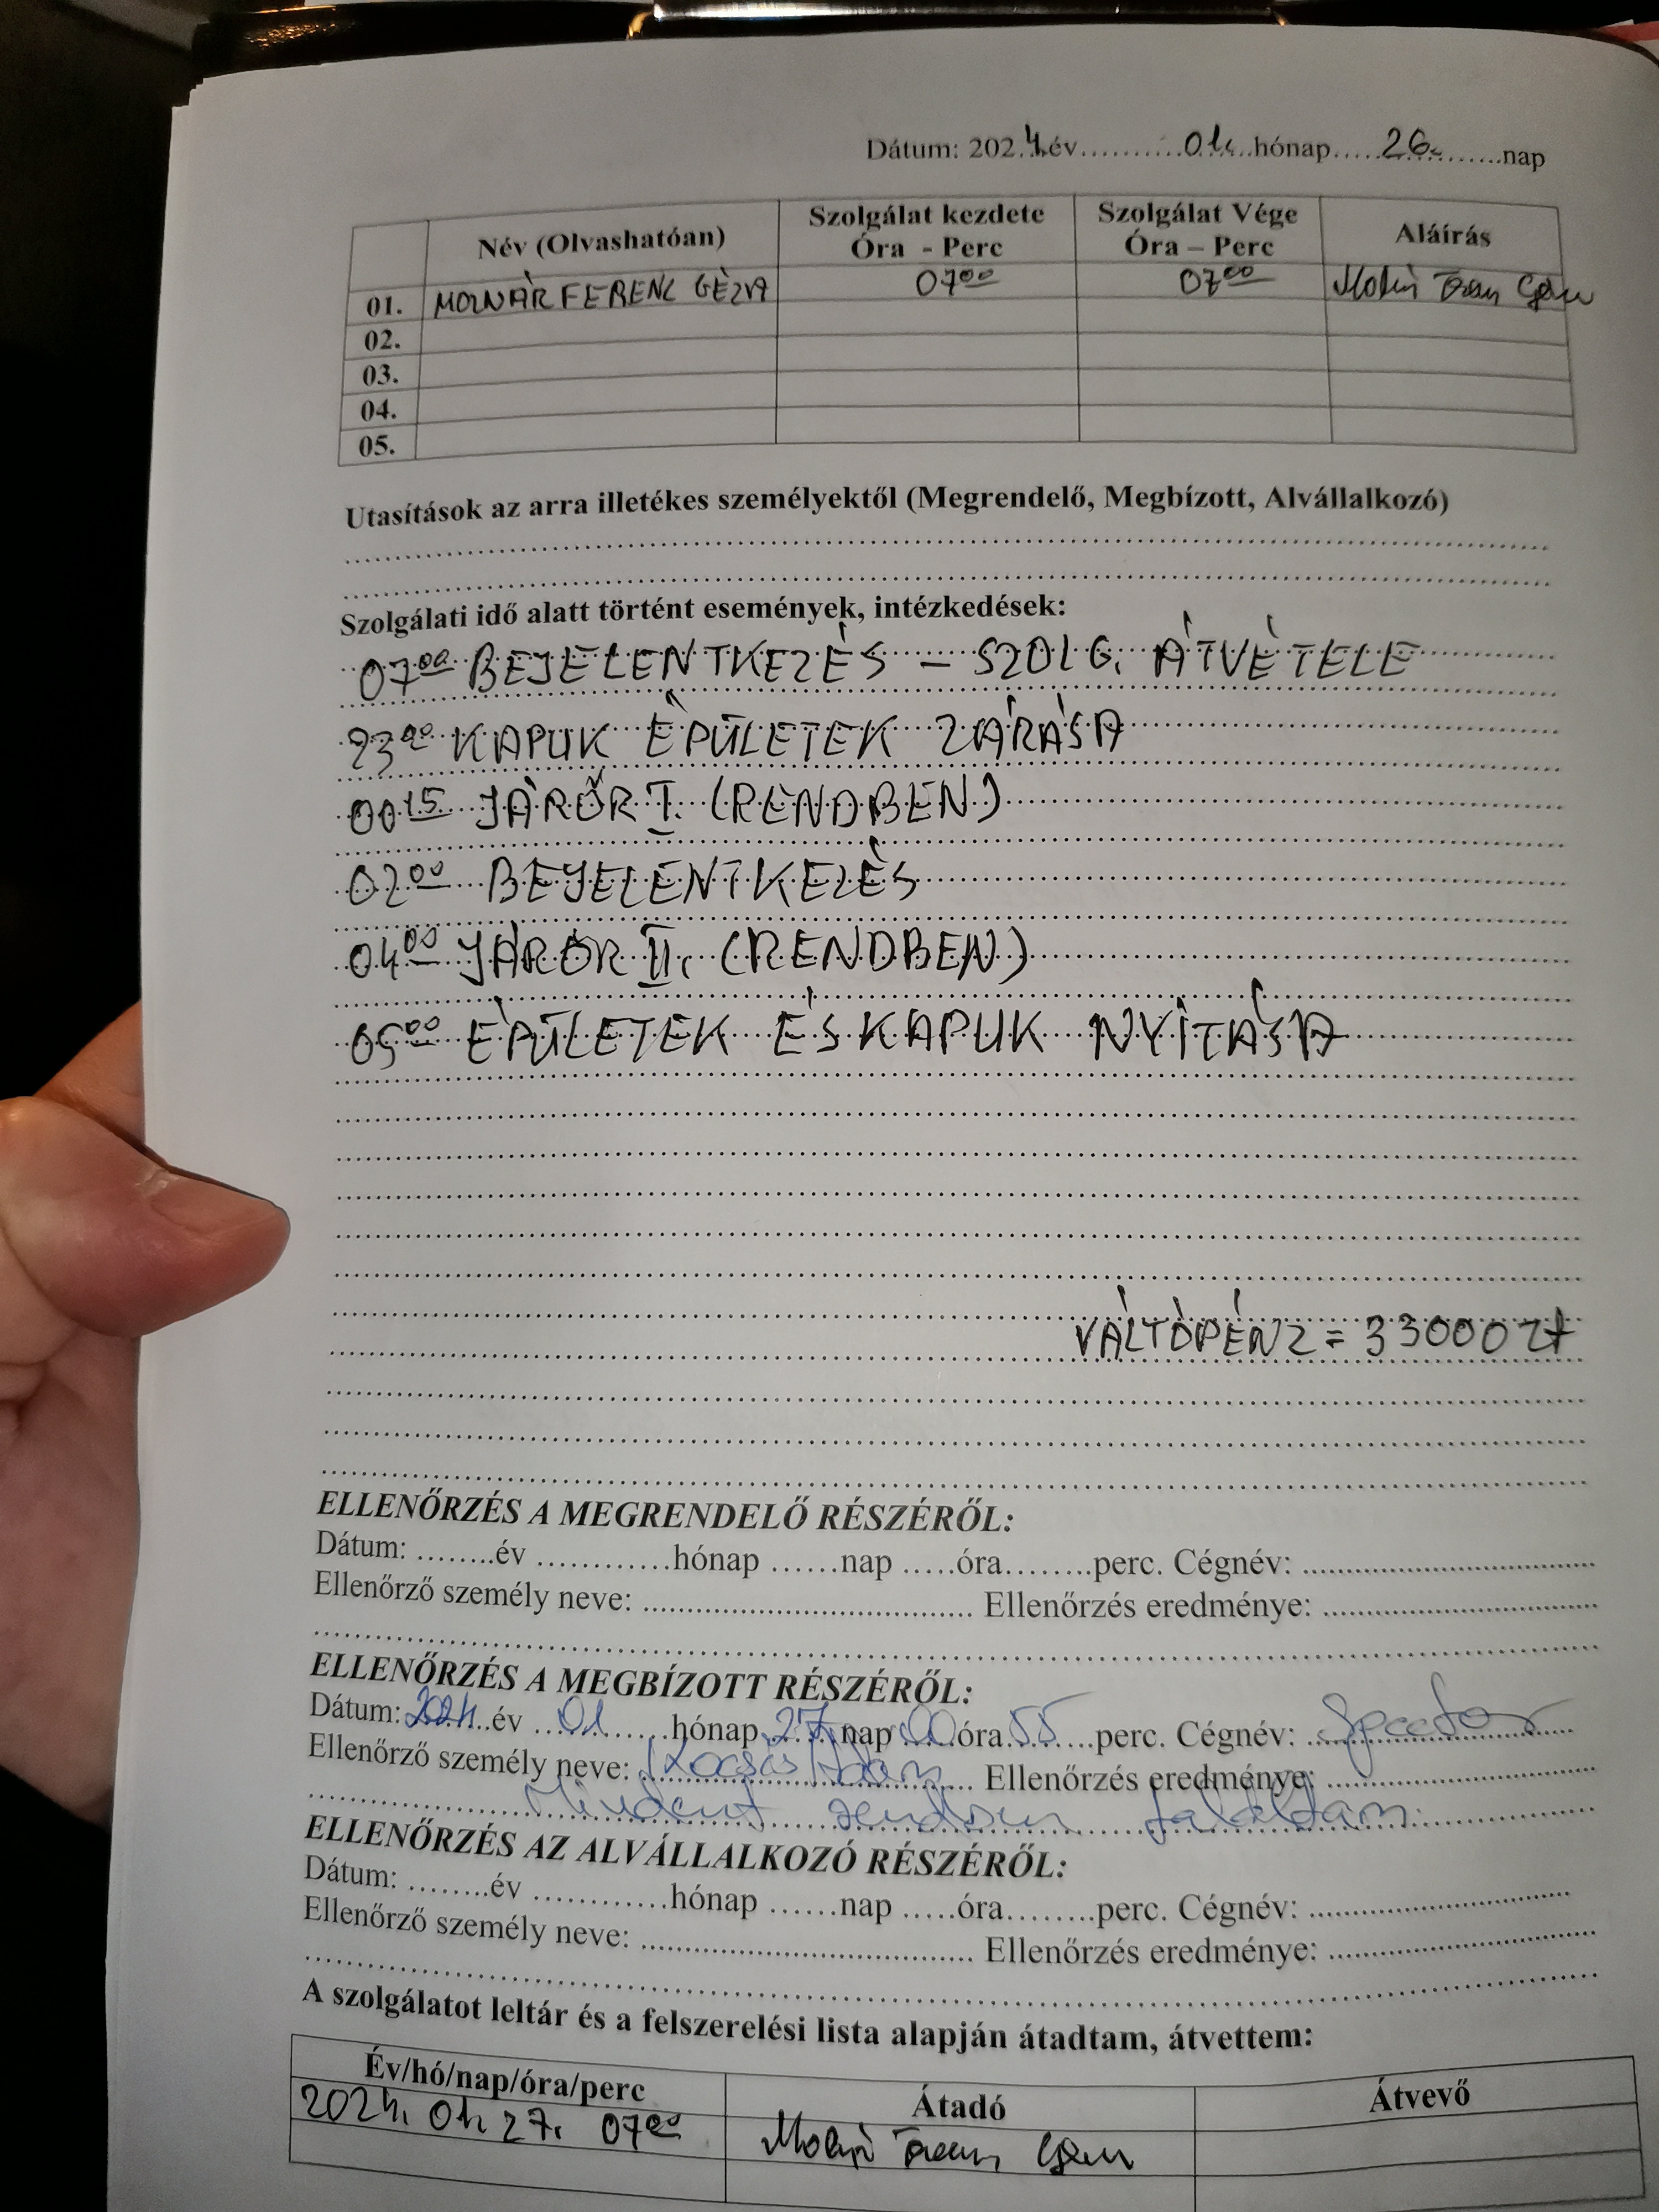 Dátum: 2024.év..........01...hónap.....26.........nap
Név (Olvashatóan) Szolgálat kezdete Óra - Perc Szolgálat Vége Óra – Perc Aláírás
01. MOLNÁR FERENC GÉZA 07⁰⁰ 07⁰⁰
02.
03.
04.
05.
Utasítások az arra illetékes személyektől (Megrendelő, Megbízott, Alvállalkozó)
Szolgálati idő alatt történt események, intézkedések:
07⁰⁰ BEJELENTKEZÉS – SZOLG. ÁTVÉTELE
23⁰⁰ KAPUK ÉPÜLETEK ZÁRÁSA
00¹⁵ JÁRŐR I. (RENDBEN)
02⁰⁰ BEJELENTKEZÉS
04⁰⁰ JÁRŐR II. (RENDBEN)
05⁰⁰ ÉPÜLETEK ÉS KAPUK NYITÁSA
VÁLTÓPÉNZ = 33000 Zł
ELLENŐRZÉS A MEGRENDELŐ RÉSZÉRŐL:
Dátum: ........év ............hónap ......nap .....óra........perc. Cégnév: ..............................
Ellenőrző személy neve: .................................... Ellenőrzés eredménye: ..............................
ELLENŐRZÉS A MEGBÍZOTT RÉSZÉRŐL:
Dátum: 2024 év 01 hónap 27 nap 00 óra 55 perc. Cégnév:
Ellenőrző személy neve: Kocsis Ádám Ellenőrzés eredménye:
Mindent rendben találtam.
ELLENŐRZÉS AZ ALVÁLLALKOZÓ RÉSZÉRŐL:
Dátum: ........év ............hónap ......nap .....óra........perc. Cégnév: ..............................
Ellenőrző személy neve: .................................... Ellenőrzés eredménye: ..............................
A szolgálatot leltár és a felszerelési lista alapján átadtam, átvettem:
Év/hó/nap/óra/perc Átadó Átvevő
2024. 01. 27. 07⁰⁰